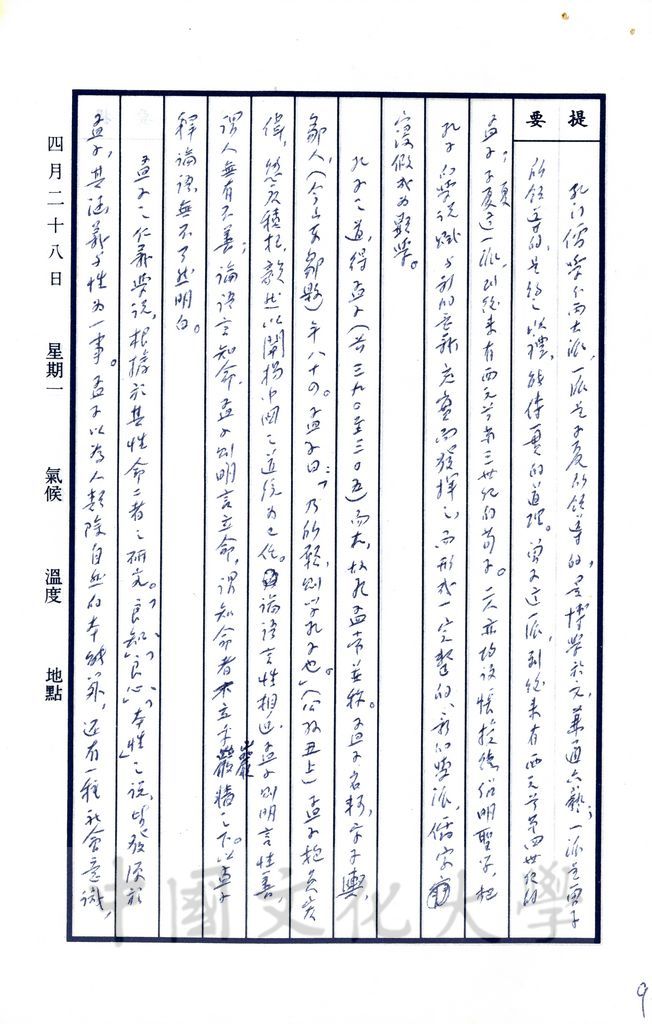 提要
孔門儒學分兩大派，一派是子夏所領導的，是博學於文，兼通六藝；一派是曾子
所領導的，是約之以禮，能傳一貫的道理。曾子這一派，到後來有西元前第四世紀的
孟子；子夏這一派，到後來有西元前第三世紀的荀子。二人亦均設帳授徒，紹明聖學，把
孔子的學說賦予新的意義充實而發揮之，而形成一完整的、新的學派，儒家
寖假成為顯學。
孔子之道，得孟子（前三九〇至三〇五）而大，故孔孟常並稱。孟子名軻，字子輿，
鄒人，（今山東鄒縣）年八十四。孟子曰：「乃所願，則學孔子也。」（公孫丑上）孟子抱負宏
偉，然後積極，毅然以闡揚中國之道統為己任。論語言性相近，孟子則明言性善，
謂人無有不善；論語言知命，孟子則明言立命，謂知命者不立乎巖牆之下。以孟子
釋論語，無不了然明白。
孟子之仁義學說，根據於其性命二者之研究。「良知」、「良心」、「本性」之說，皆發源於
孟子，其涵義與性為一事。孟子以為人類除自然的本能外，還有一種社會意識，
四月二十八日 星期一 氣候 溫度 地點
中國文化大學
9